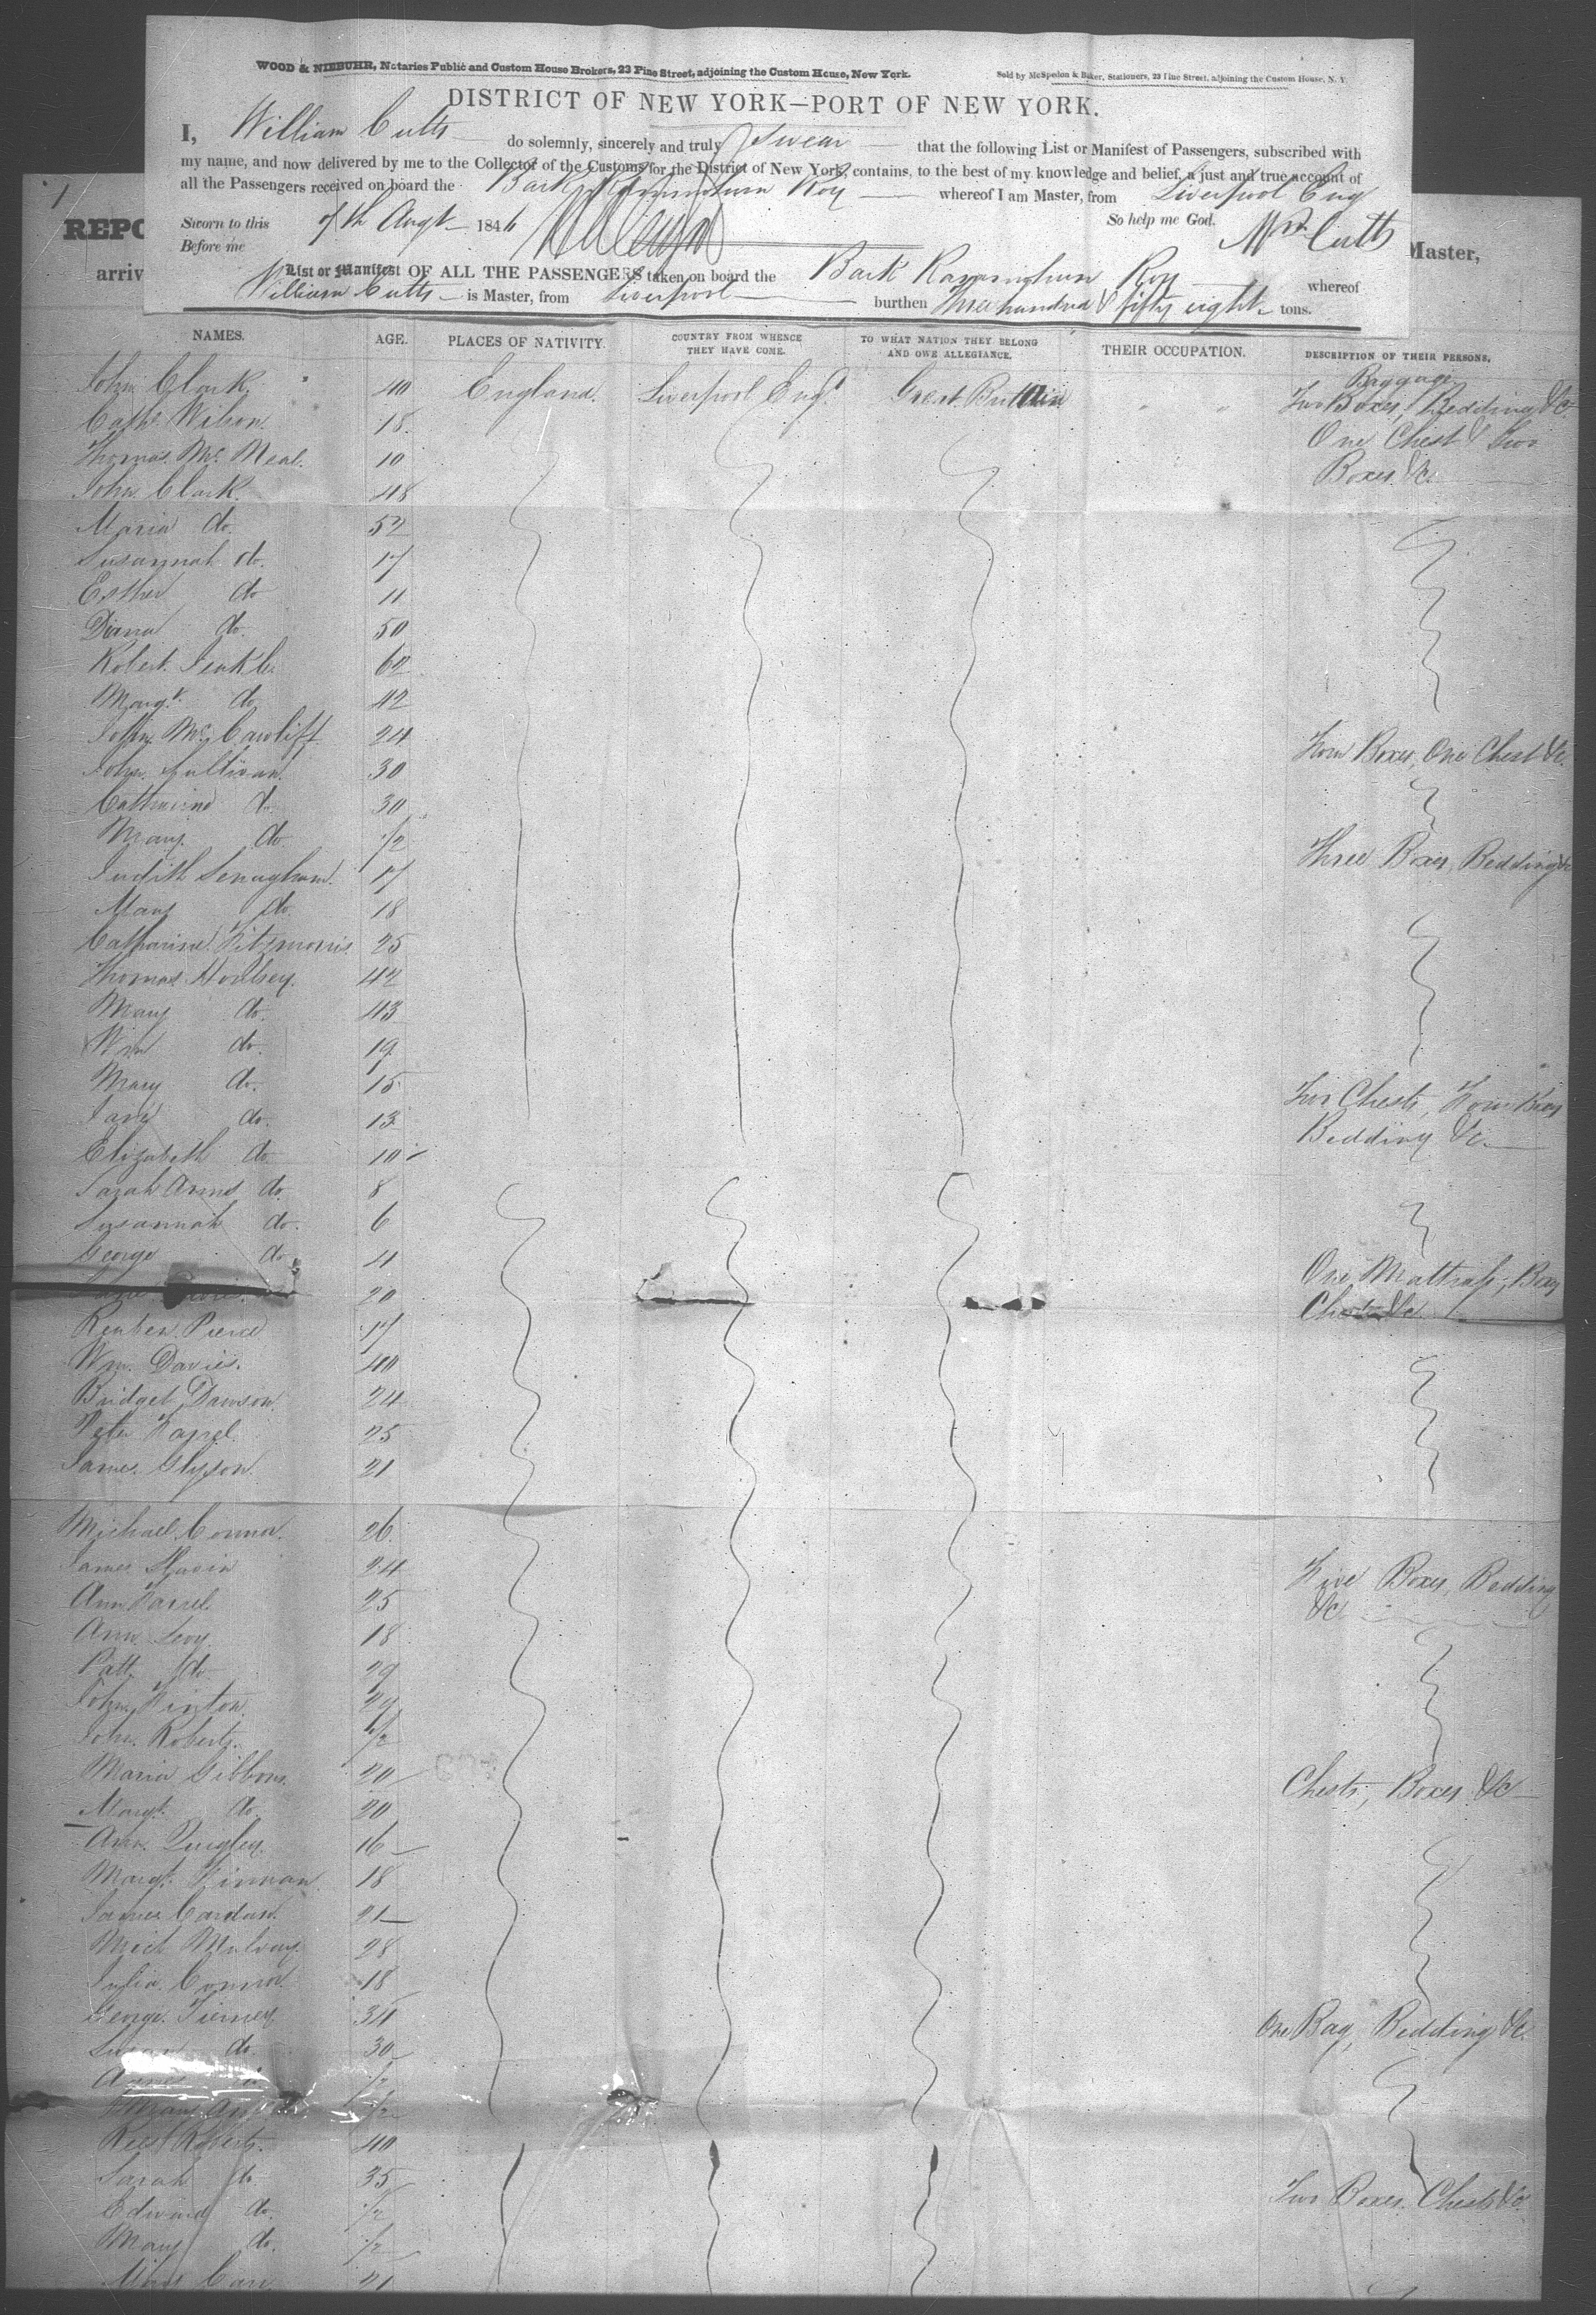 WOOD & NIEBUHR, Notaries Public and Custom House Brokers, 23 Pine Street, adjoining the Custom House, New York.
Sold by McSpedon & Baker, Stationers, 23 Pine Street, adjoining the Custom House, N. Y.
DISTRICT OF NEW YORK—PORT OF NEW YORK.
I, William Cutts do solemnly, sincerely and truly Swear that the following List or Manifest of Passengers, subscribed with
my name, and now delivered by me to the Collector of the Customs for the District of New York, contains, to the best of my knowledge and belief, a just and true account of
all the Passengers received on board the Bark Ramanohun Roy whereof I am Master, from Liverpool Eng
Sworn to this 7th Augt 1846 So help me God. Wm Cutts
Before me
REPO
arriv
Master,
List or Manifest OF ALL THE PASSENGERS taken on board the Bark Ramanohun Roy whereof
William Cutts is Master, from Liverpool burthen Three hundred & fifty eight tons.
NAMES. AGE. PLACES OF NATIVITY. COUNTRY FROM WHENCE THEY HAVE COME. TO WHAT NATION THEY BELONG AND OWE ALLEGIANCE. THEIR OCCUPATION. DESCRIPTION OF THEIR PERSONS.
Baggage
John Clark 40 England. Liverpool Engd Great Brittain " " Two Boxes, Bedding &c.
Cath. Wilson 18 One Chest & Two
Thomas McNeal. 10 Boxes &c.
John Clark. 48
Maria do. 52
Susannah do. 17
Esther do 11
Diana do. 50
Robert 62
Margt. do 42
John 24 Four Boxes, One Chest &c.
John Sullivan 30
Catharine do. 30
Mary. do 1/2
Judith 17 Three Boxes, Bedding &c
Mary do. 18
Catharine Fitzmorris 25
Thomas 42
Mary do. 43
Wm do. 19
Mary do. 15
Jane do. 13 Two Chests, Four Boxes
Elizabeth do. 10 Bedding &c.
Sarah Annd do. 8
Susannah do. 6
George do. 4
20 One Mattrass, Box,
Reuben Pierce 17 Chest &c
Wm. Davies. 40
Bridget Dawson 24
Peter Farrel. 25
James 21
Michael Connor. 26
James Slavin 24 Five Boxes, Bedding
Ann Farrel 25 &c
Ann Levy. 18
Patt do 29
John Finton. 29
John Roberts. 1/2
Maria Gibbons. 20 Chests, Boxes &c
Margt. do. 20
Ann. Quigley. 16
Margt. Kinnan 18
James 21
Mich Mulvey. 28
Julia Connor. 18
George. Tierney. 34 One Bag, Bedding &c.
Susan do. 30
Agnes 1/2
Mary Ann 1/2
Rees Roberts. 40
Sarah do. 35
Edward do. 1/2 Two Boxes. Chests &c.
Mary do. 1/2
Mary 21